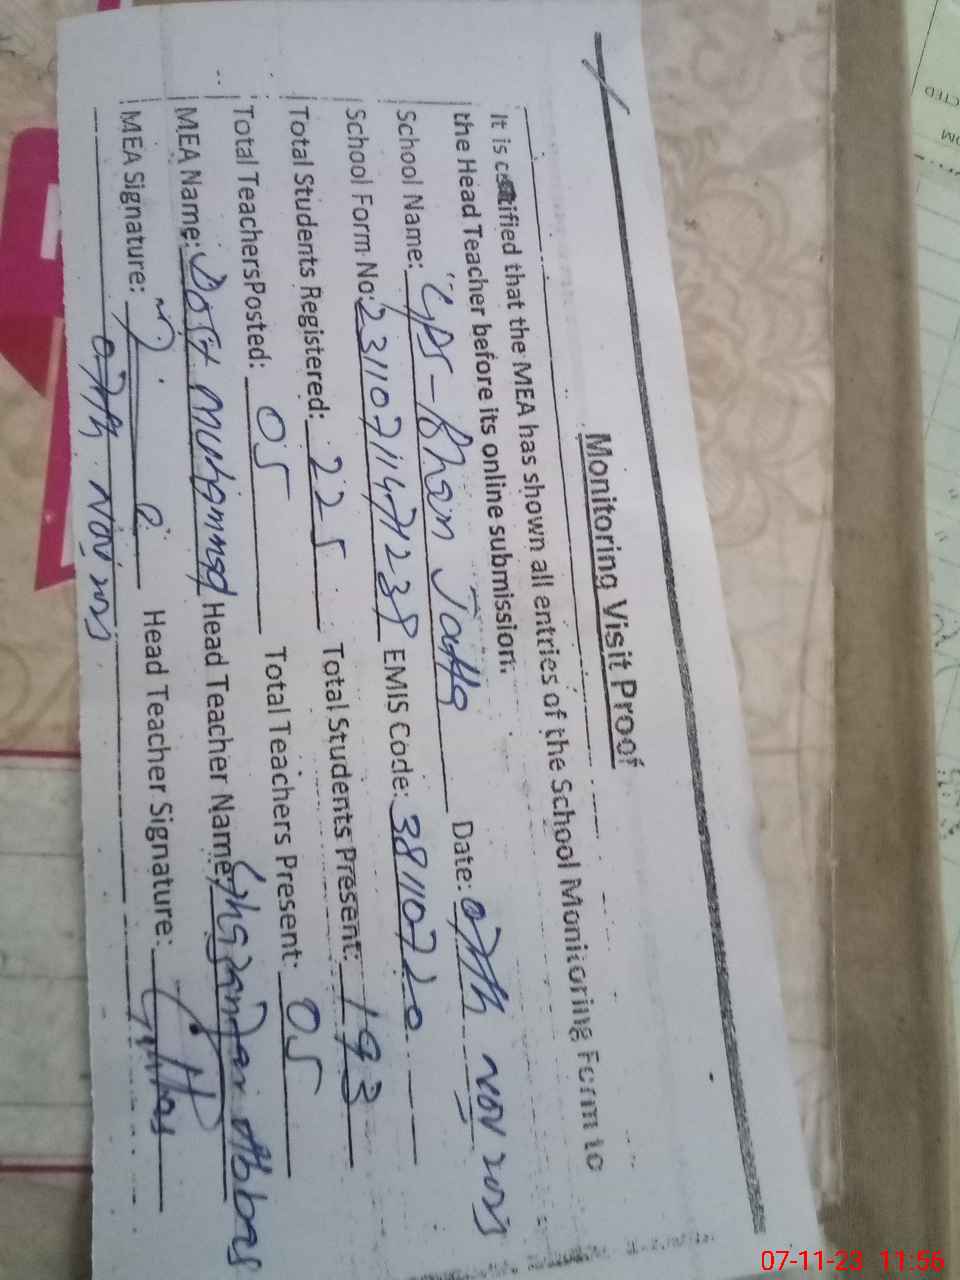 Monitoring Visit Proof
It is certified that the MEA has shown all entries of the School Monitoring Form to
the Head Teacher before its online submission.
School Name: GPS - Bhan Date: 07th Nov 2023
School Form No: EMIS Code: 38110720
Total Students Registered: 225 Total Students Present: 193
Total Teachers Posted: 05 Total Teachers Present: 05
MEA Name: Dost Muhammad Head Teacher Name: Abbas
MEA Signature: Head Teacher Signature:
07th Nov 2023
CTED
07-11-23 11:56